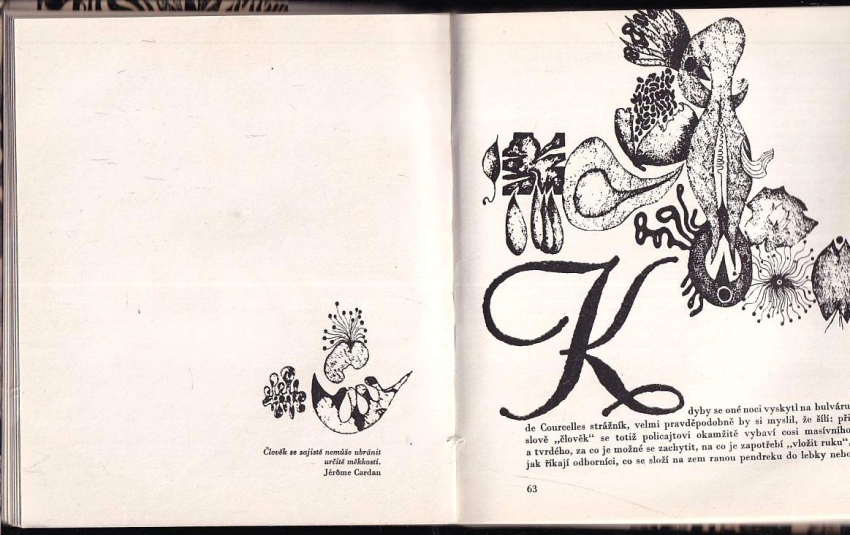 Člověk se zajisté nemůže ubránit
určité měkkosti.
Jérôme Cardan
K
dyby se oné noci vyskytl na bulváru
de Courcelles strážník, velmi pravděpodobně by si myslil, že šílí: při
slově „člověk“ se totiž policajtovi okamžitě vybaví cosi masívního
a tvrdého, za co je možné se zachytit, na co je zapotřebí „vložit ruku“,
jak říkají odborníci, co se složí na zem ranou pendreku do lebky nebo
63